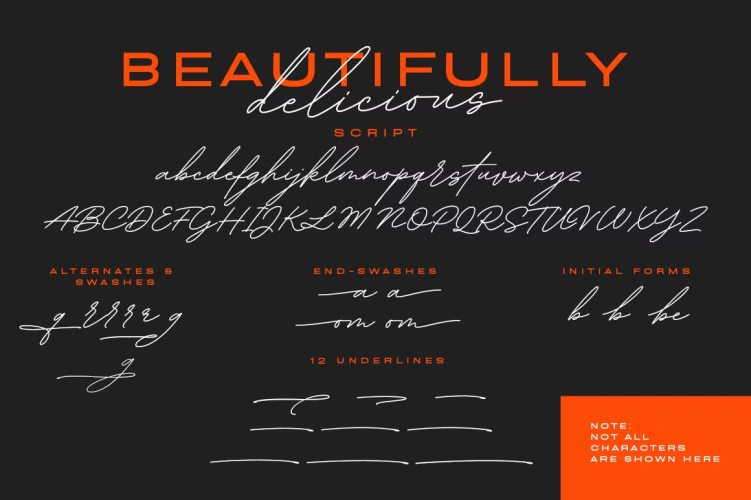 BEAUTIFULLY
delicious
SCRIPT
abcdefghijklmnopqrstuvwxyz
ABCDEFGHIJKLMNOPQRSTUVWXYZ
ALTERNATES &
SWASHES
END-SWASHES
INITIAL FORMS
g rrrr g
a a
b b be
om om
g
12 UNDERLINES
NOTE:
NOT ALL
CHARACTERS
ARE SHOWN HERE